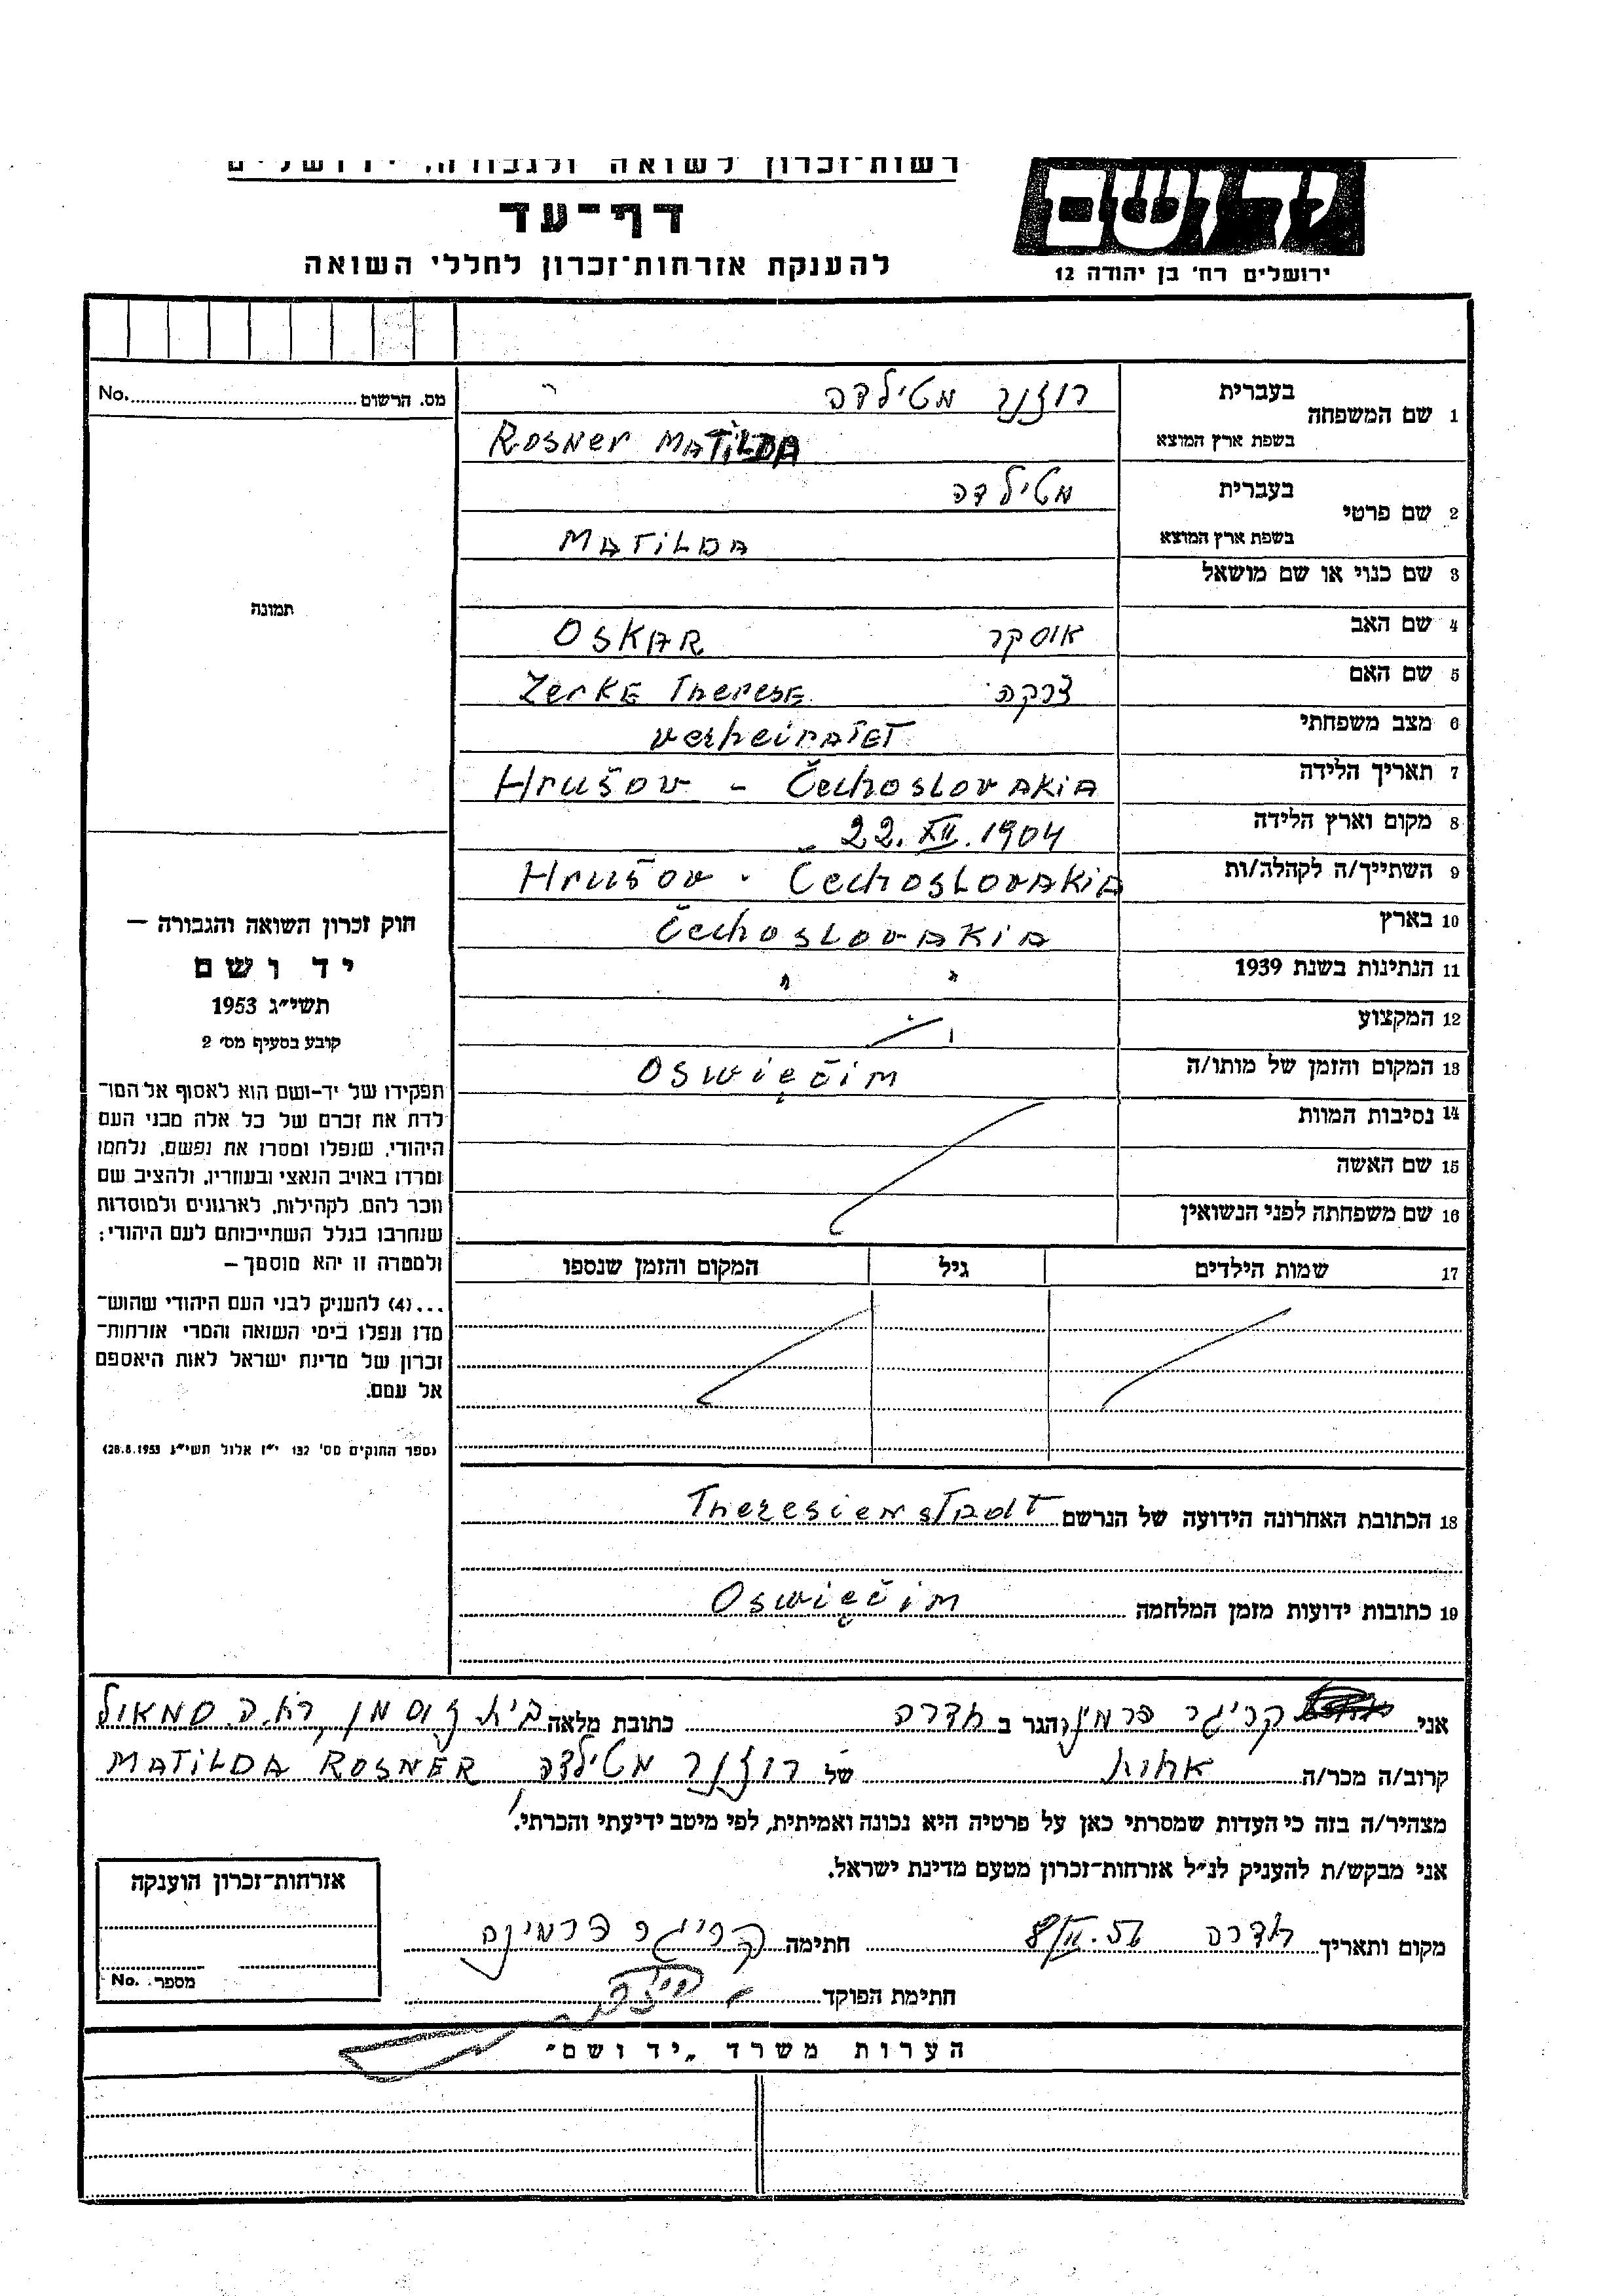 רשות־זכרון לשואה ולגבורה, ירושלים
דף־עד
להענקת אזרחות־זכרון לחללי השואה
יד ושם
ירושלים רח' בן יהודה 12
מס. הרשום No.
תמונה
1 שם המשפחה
בעברית רוזנר מטילדה
בשפת ארץ המוצא Rosner MATILDA
2 שם פרטי
בעברית מטילדה
בשפת ארץ המוצא MATiLDA
3 שם כנוי או שם מושאל
4 שם האב אוסקר OSKAR
5 שם האם צרקה ZerKE TherESE
6 מצב משפחתי verheiratET
7 תאריך הלידה Hrušov - ČechoSLOVAKiA
8 מקום וארץ הלידה 22. XII. 1904
9 השתייך/ה לקהלה/ות Hrušov - ČechoSLOVAKiA
10 בארץ ČechoSLOVAKiA
11 הנתינות בשנת 1939 " "
12 המקצוע
13 המקום והזמן של מותו/ה Oswięčim
14 נסיבות המוות
15 שם האשה
16 שם משפחתה לפני הנשואין
17 שמות הילדים גיל המקום והזמן שנספו
חוק זכרון השואה והגבורה —
יד ושם
תשי"ג 1953
קובע בסעיף מס' 2
תפקידו של יד-ושם הוא לאסוף אל המו־
לדת את זכרם של כל אלה מבני העם
היהודי, שנפלו ומסרו את נפשם, נלחמו
ומרדו באויב הנאצי ובעוזריו, ולהציב שם
וזכר להם, לקהילות, לארגונים ולמוסדות
שנחרבו בגלל השתייכותם לעם היהודי;
ולמטרה זו יהא מוסמך —
...(4) להעניק לבני העם היהודי שהוש־
מדו ונפלו בימי השואה והמרי אזרחות־
זכרון של מדינת ישראל לאות היאספם
אל עמם.
(ספר החוקים מס' 132 י"ז אלול תשי"ג 28.8.1953)
18 הכתובת האחרונה הידועה של הנרשם Theresienstadt
19 כתובות ידועות מזמן המלחמה Oswięčim
אני קריגר פרמין הגר ב חדרה כתובת מלאה בית זוסמן ע"י ה. סמאול
קרוב/ה מכר/ה אחות של רוזנר מטילדה MATiLDA ROSNER
מצהיר/ה בזה כי העדות שמסרתי כאן על פרטיה היא נכונה ואמיתית, לפי מיטב ידיעתי והכרתי.
אני מבקש/ת להעניק לנ"ל אזרחות-זכרון מטעם מדינת ישראל.
מקום ותאריך חדרה 8/II.56 חתימה קריגר פרמינה
חתימת הפוקד
אזרחות־זכרון הוענקה
מספר. No.
הערות משרד „יד ושם"